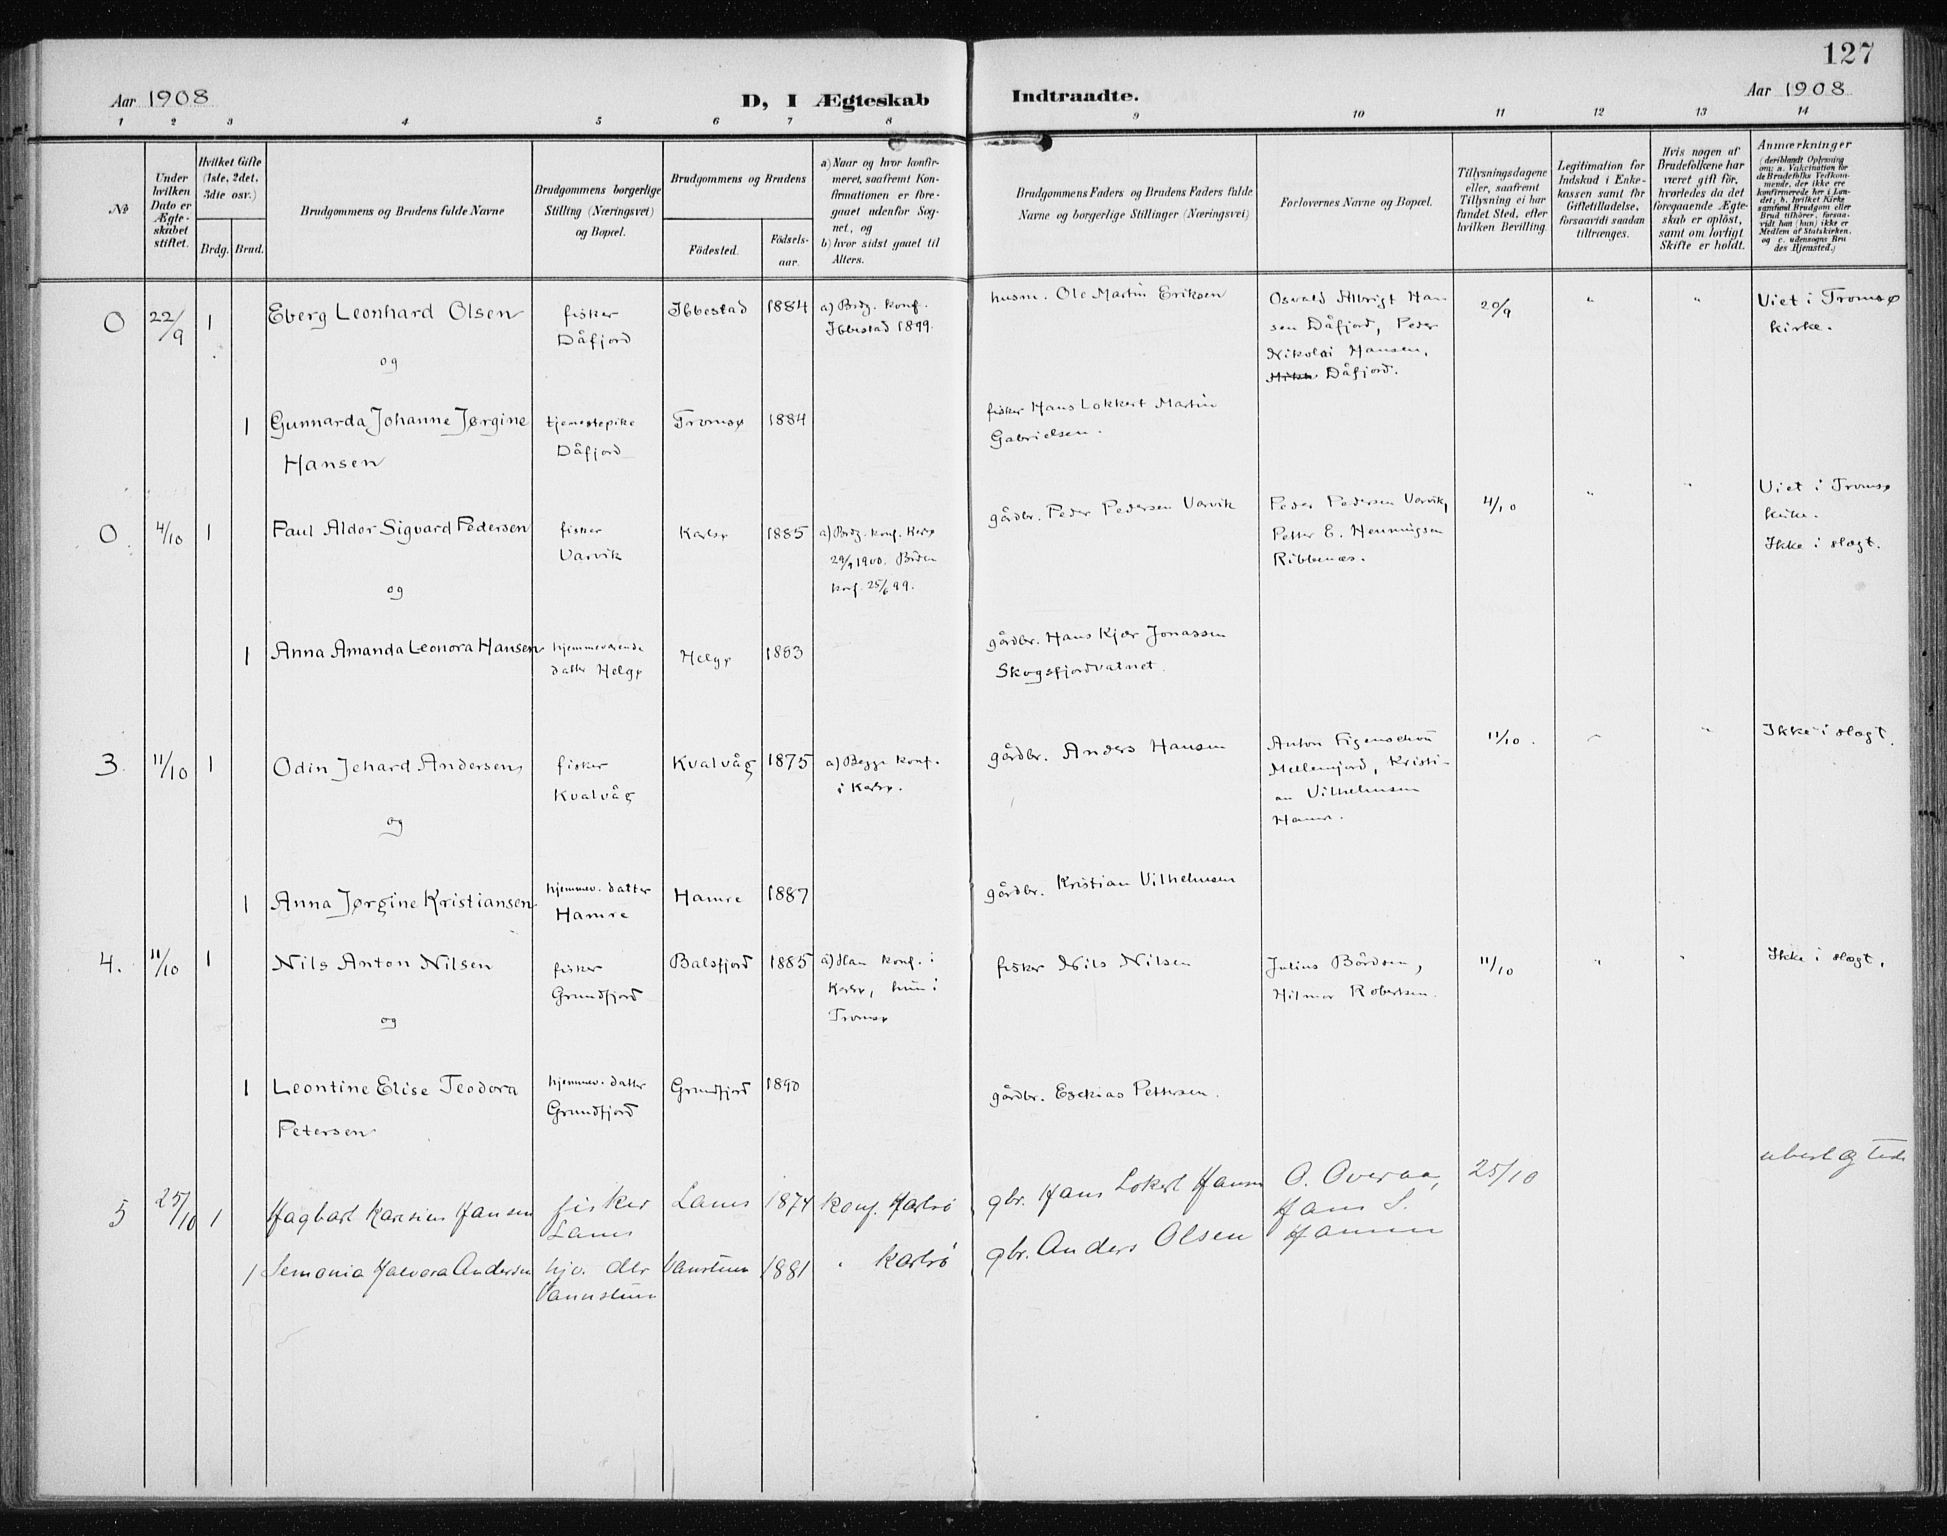 127
Aar 1908
D, I Ægteskab
Indtraadte.
Aar 1908
1 2 3 4 5 6 7 8 9 10 11 12 13 14
№
Under hvilken Dato er Ægteskabet stiftet.
Hvilket Gifte (1ste, 2det, 3dte osv.)
Brdg. Brud.
Brudgommens og Brudens fulde Navne
Brudgommens borgerlige Stilling (Næringsvei) og Bopæl.
Brudgommens og Brudens
Födested.
Födselsaar.
a) Naar og hvor konfirmeret, saafremt Konfirmationen er foregaaet udenfor Sognet, og
b) hvor sidst gaaet til Alters.
Brudgommens Faders og Brudens Faders fulde Navne og borgerlige Stillinger (Næringsvei)
Forlovernes Navne og Bopæl.
Tillysningsdagene eller, saafremt Tillysning ei har fundet Sted, efter hvilken Bevilling.
Legitimation for Indskud i Enkekassen samt for Giftetilladelse, forsaavidt saadan tiltrænges.
Hvis nogen af Brudefolkene har været gift för, hvorledes da det foregaaende Ægteskab er oplöst, samt om lovligt Skifte er holdt.
Anmærkninger
(deriblandt Oplysning om: a. Vakcination for de Brudefolks Vedkommende, der ikke ere konfirmerede her i Landet; b. hvilket Kirkesamfund Brudgom eller Brud tilhörer, forsaavidt han (hun) ikke er Medlem af Statskirken. og c. udensogns Brudes Hjemsted.)
0 22/9 1 Eberg Leonhard Olsen fisker Dåfjord Ibbestad 1884 a) Brdg. konf. Ibbestad 1899. husm. Ole Martin Eriksen Osvald Albrigt Hansen Dåfjord, Peder Nikolai Hansen, Dåfjord. 20/9 " " Viet i Tromsø kirke.
og
1 Gunnarda Johanne Jørgine Hansen tjenestepike Dåfjord Tromsø 1884 fisker Hans Lokkert Martin Gabrielsen.
0. 4/10 1 Paul Aldor Sigvard Pedersen fisker Varvik Karlsø 1885 a) Brdg. konf. Karlsø 29/9 1900. Bruden konf. 25/6 99. gårdbr. Peder Pedersen Varvik Peder Pedersen Varvik, Petter E. Henningsen Ribbenæs. 4/10 " " Viet i Tromsø kirke. Ikke i slægt.
og
1 Anna Amanda Leonora Hansen hjemmeværende datter Helgø Helgø 1883 gårdbr. Hans Kjær Jonassen Skogsfjordvatnet.
3. 11/10 1 Odin Jehard Andersen fisker Kvalvåg Kvalvåg 1875 a) Begge konf. i Karlsø. gårdbr. Anders Hansen Anton Figenschou Mellemjord, Kristian Vilhelmsen Hamre. 11/10. " " Ikke i slægt.
og
1 Anna Jørgine Kristiansen hjemmev. datter Hamre Hamre 1887 gårdbr. Kristian Vilhelmsen
4. 11/10 1 Nils Anton Nilsen fisker Grundfjord Balsfjord 1885 a) Han konf. i Karlsø, hun i Tromsø fisker Nils Nilsen Julius Bårdsen, Hilmar Robertsen. 11/10 " " Ikke i slægt.
og
1 Leontine Elise Teodora Petersen hjemmev. datter Grundfjord Grundfjord 1890 gårdbr. Esekias Pettersen.
5 25/10 1 Hagbart Karesius Hansen fisker Lanes Lanes 1874 konf. Karlsö gbr. Hans Lokert Hansen O. Overaa, Hans S. Hansen 25/10 ubeslægtede
1 Semonia Halvora Andersen hjv. dtr Vannstuen Vanstuen 1881 " Karlsö gbr. Anders Olsen